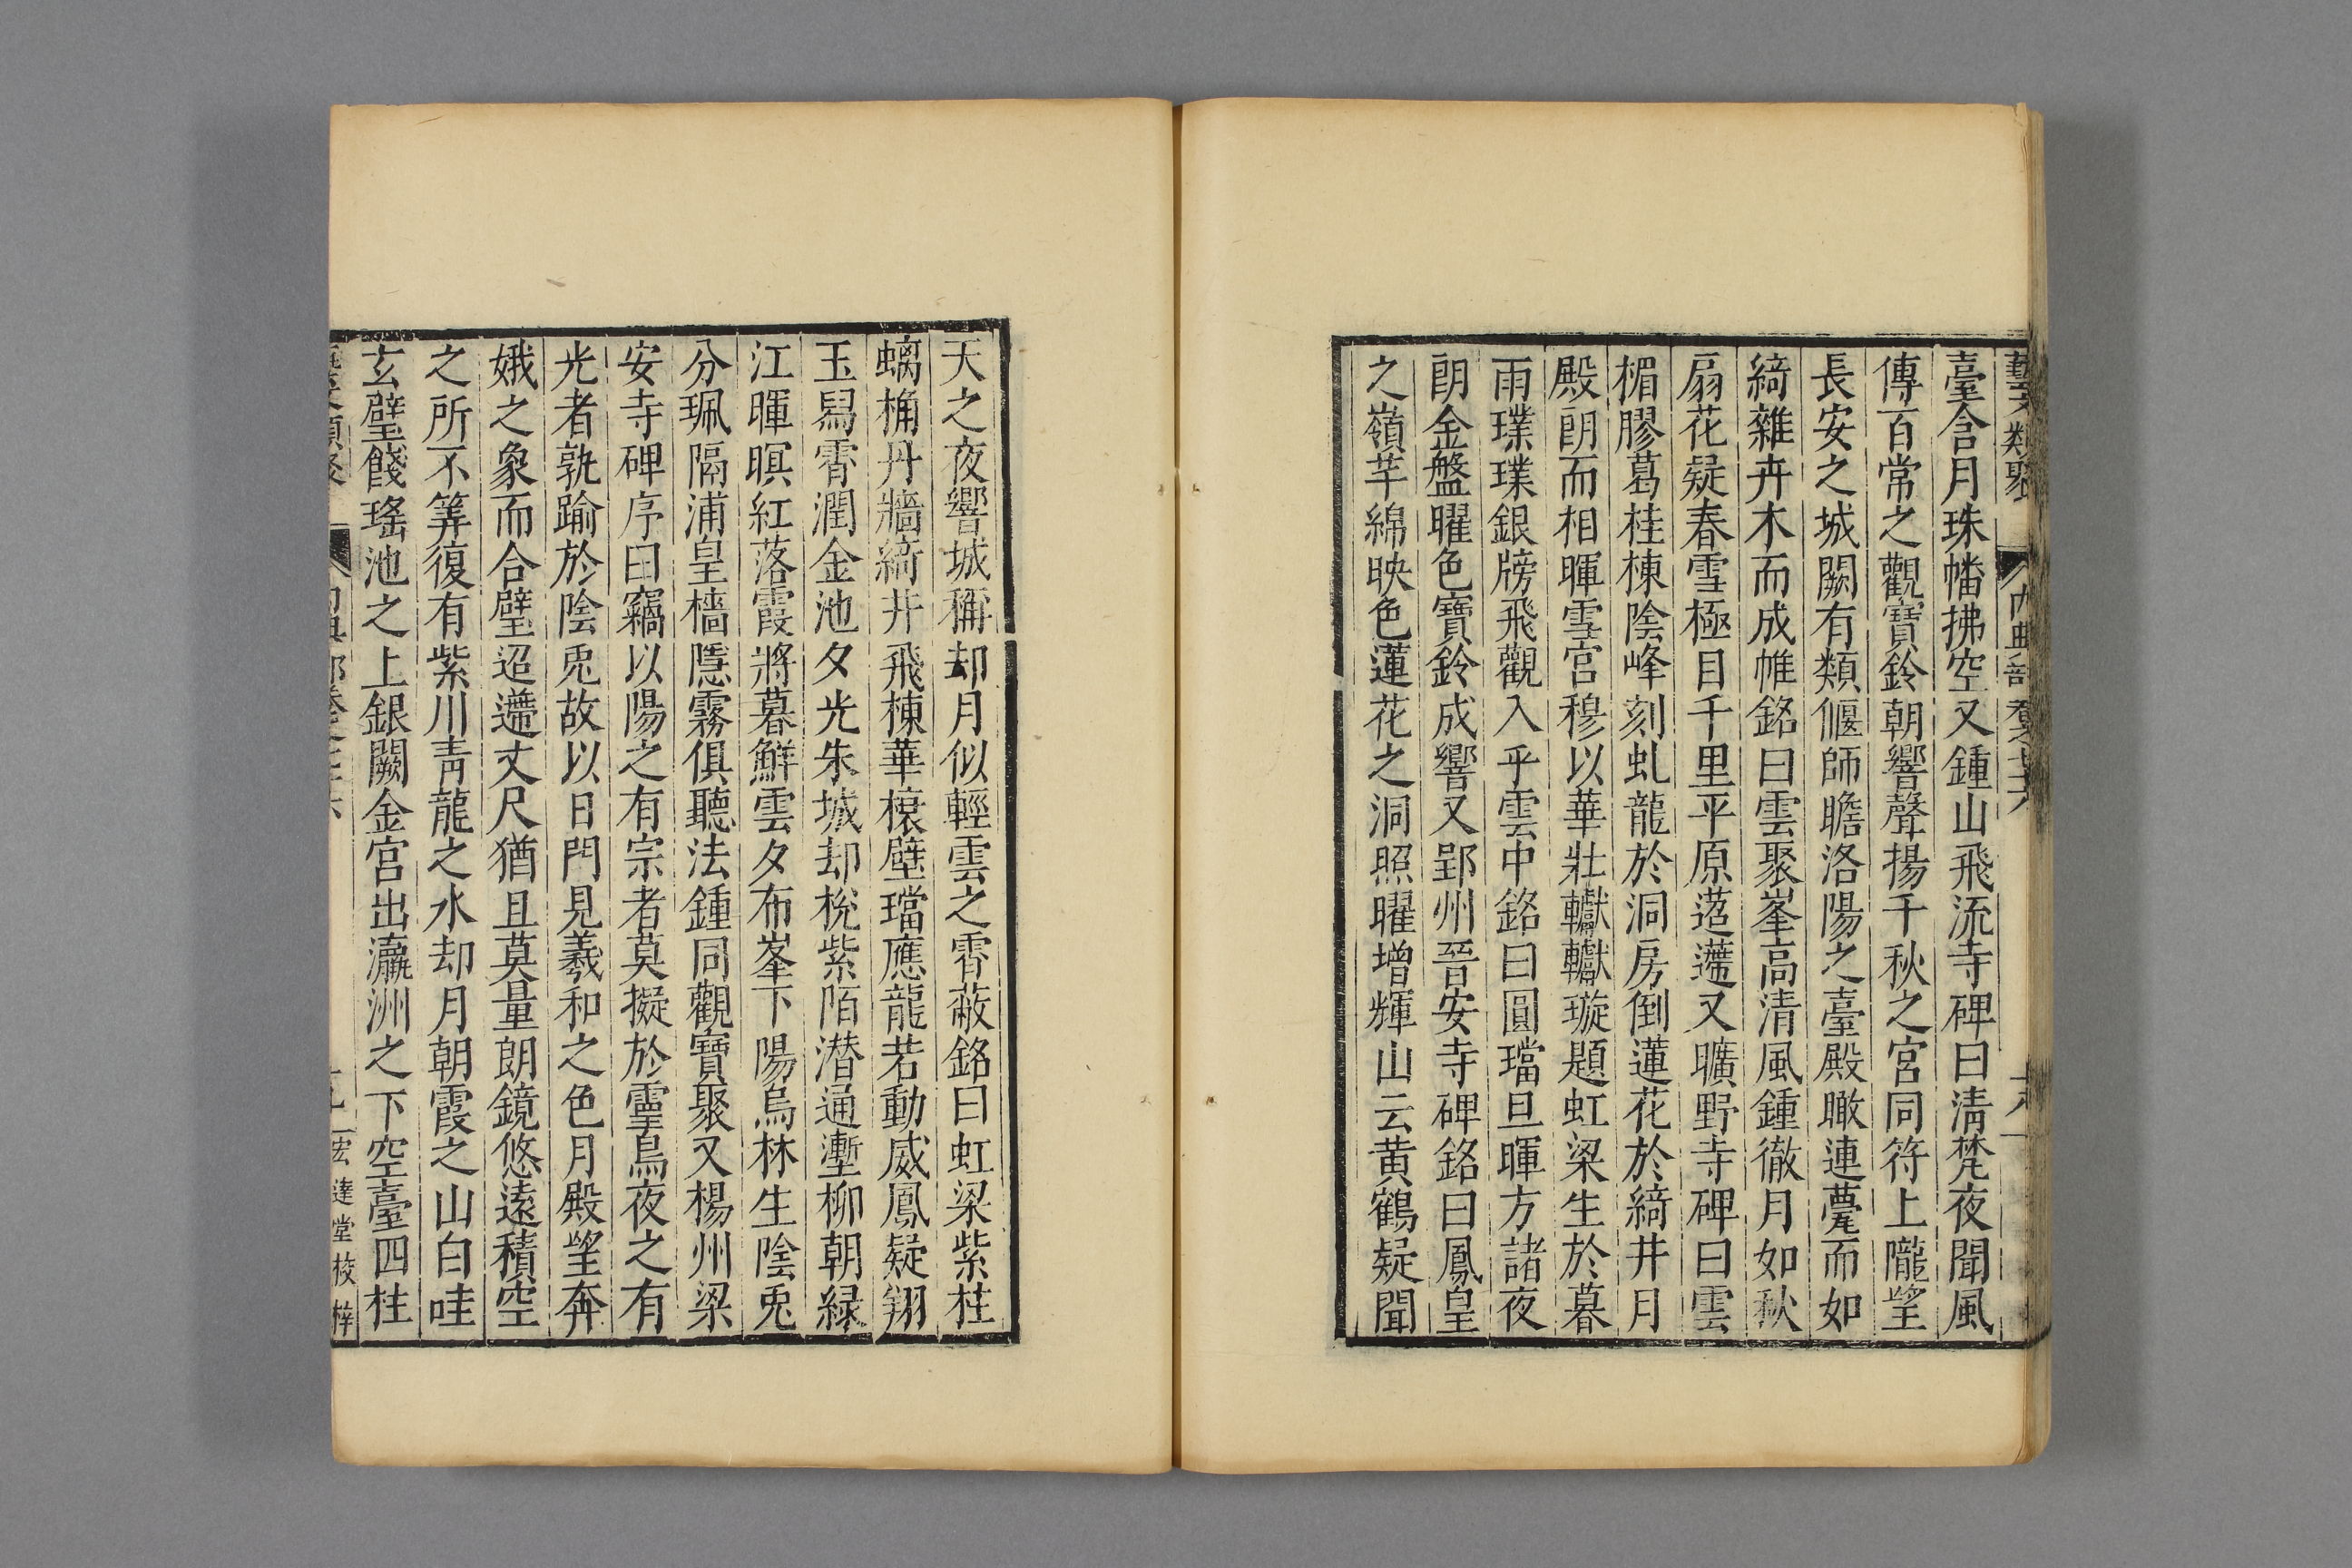 藝文類聚 內典部卷七十六 十八
臺合月珠幡拂空又鍾山飛流寺碑曰清梵夜聞風
傳百常之觀寶鈴朝響聲揚千秋之宮同符上隴望
長安之城闕有類偃師瞻洛陽之臺殿瞰連甍而如
綺雜卉木而成帷銘曰雲聚峯高清風鍾徹月如秋
扇花疑春雪極目千里平原迢遰又曠野寺碑曰雲
楣膠葛桂棟陰峰刻虬龍於洞房倒蓮花於綺井月
殿朗而相暉雪宮穆以華壯轥轥璇題虹梁生於暮
雨璞璞銀牓飛觀入乎雲中銘曰圓璫旦暉方諸夜
朗金盤曜色寶鈴成響又郢州晉安寺碑銘曰鳳皇
之嶺芊綿映色蓮花之洞照曜增輝山云黄鶴疑聞
天之夜響城稱却月似輕雲之霄蔽銘曰虹梁紫柱
螭桷丹牆綺井飛棟華榱壁璫應龍若動威鳳疑翔
玉舄霄潤金池夕光朱城却梲紫陌潛通壍柳朝綠
江暉暝紅落霞將暮鮮雲夕布峯下陽烏林生陰兎
分珮隔浦皇檣隱霧俱聽法鍾同觀寶聚又楊州梁
安寺碑序曰竊以陽之有宗者莫擬於靈烏夜之有
光者孰踰於陰兎故以日門見羲和之色月殿望奔
娥之象而合璧迢遰丈尺猶且莫量朗鏡悠遠積空
之所不筭復有紫川靑龍之水却月朝霞之山白哇
玄璧餞瑤池之上銀闕金宮出瀛洲之下空臺四柱
宏達堂校梓